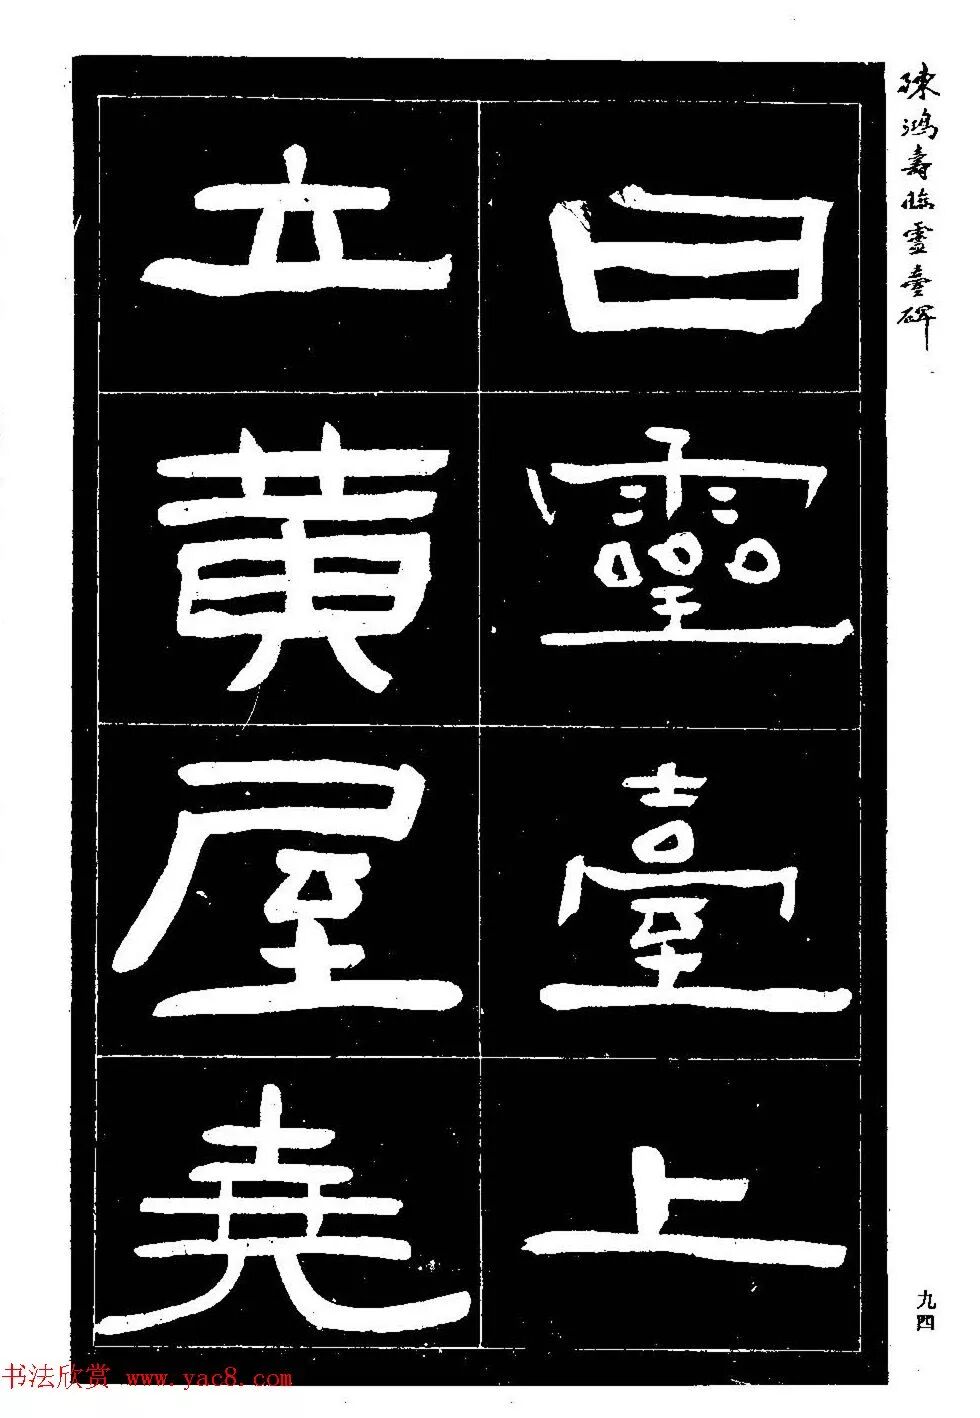 陳鴻壽臨靈臺碑
曰靈臺上
立黄屋堯
九四
书法欣赏 www.yac8.com